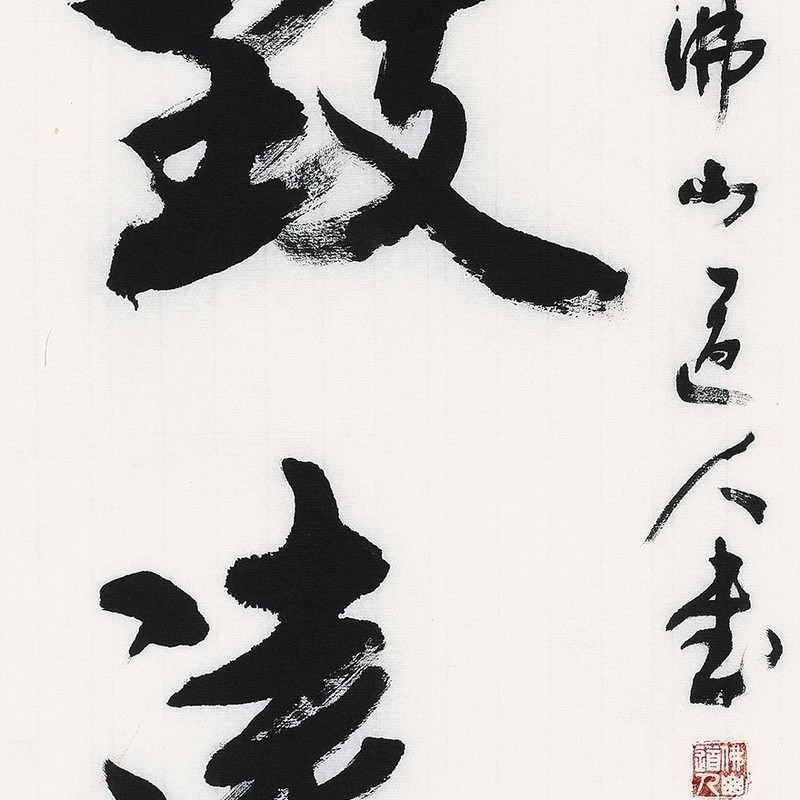 致遠
佛山道人書
佛山
道人